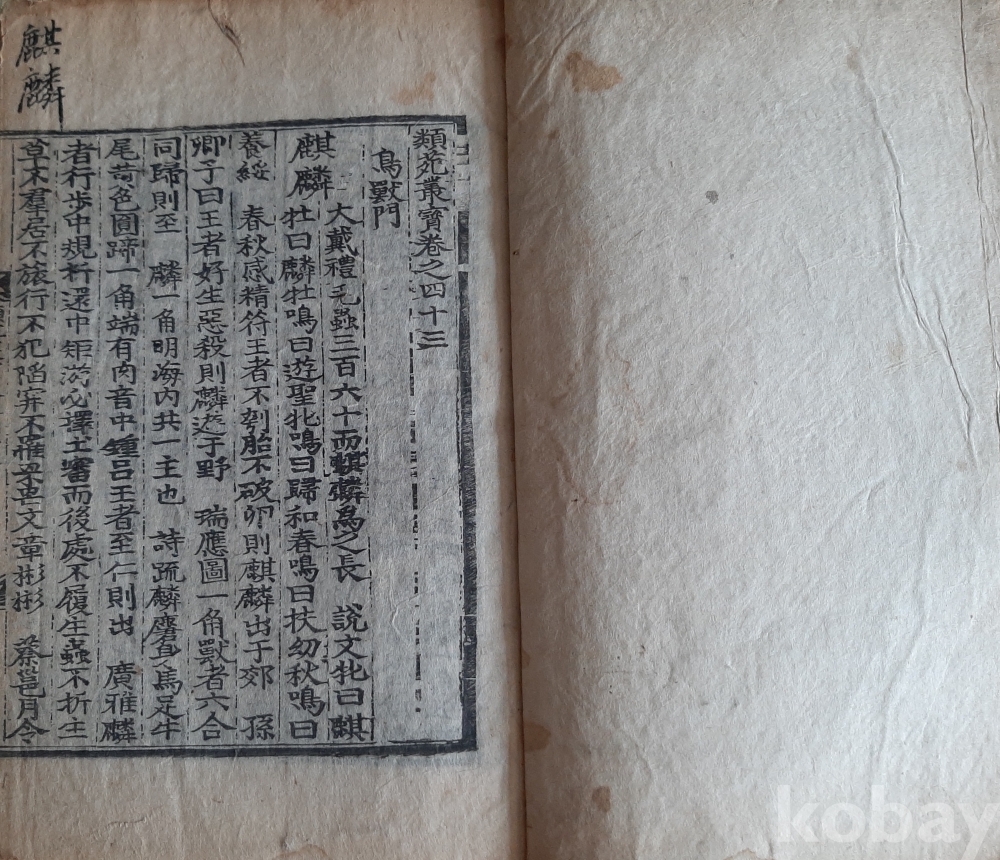 麒麟
類苑叢寶卷之四十三
鳥獸門
麒麟 大戴禮毛蟲三百六十而麒麟爲之長 說文牝曰麒
牡曰麟牡鳴曰遊聖牝鳴曰歸和春鳴曰扶幼秋鳴曰
養綏 春秋感精符王者不刳胎不破卵則麒麟出于郊 孫
卿子曰王者好生惡殺則麟遊于野 瑞應圖一角獸者六合
同歸則至 麟一角明海內共一主也 詩疏麟麕身馬足牛
尾黃色圓蹄一角端有肉音中鍾呂王者至仁則出 廣雅麟
者行步中規折還中矩游必擇土審而後處不履生蟲不折生
草不羣居不旅行不犯陷穽不羅罘罔文章彬彬 蔡邕月令
kobay